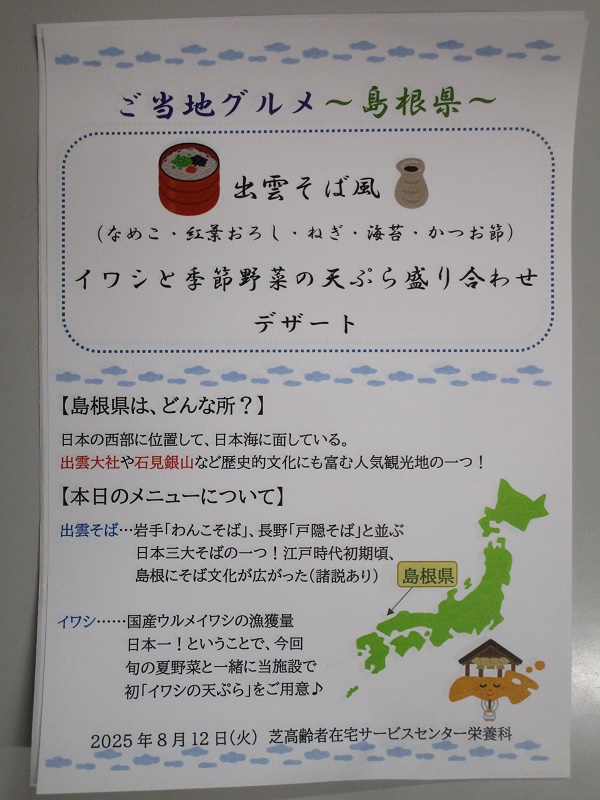 ご当地グルメ～島根県～
出雲そば風
（なめこ・紅葉おろし・ねぎ・海苔・かつお節）
イワシと季節野菜の天ぷら盛り合わせ
デザート
【島根県は、どんな所？】
日本の西部に位置して、日本海に面している。
出雲大社や石見銀山など歴史的文化にも富む人気観光地の一つ！
【本日のメニューについて】
出雲そば…岩手「わんこそば」、長野「戸隠そば」と並ぶ
日本三大そばの一つ！江戸時代初期頃、
島根にそば文化が広がった（諸説あり）
島根県
イワシ……国産ウルメイワシの漁獲量
日本一！ということで、今回
旬の夏野菜と一緒に当施設で
初「イワシの天ぷら」をご用意♪
2025年8月12日（火） 芝高齢者在宅サービスセンター栄養科